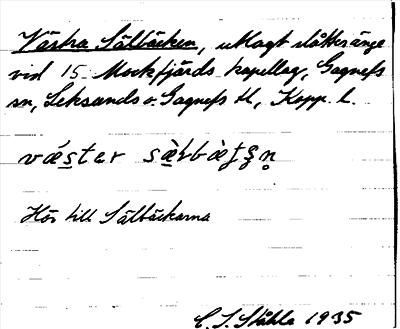 Västra Sälbäcken, utlagt slåttesänge
vid 15 Mockfjärds kapellag, Gagnefs
sn, Leksands o. Gagnefs tl, Kopp. l.
Hör till Sälbäckarna
C. I. Ståhle 1935